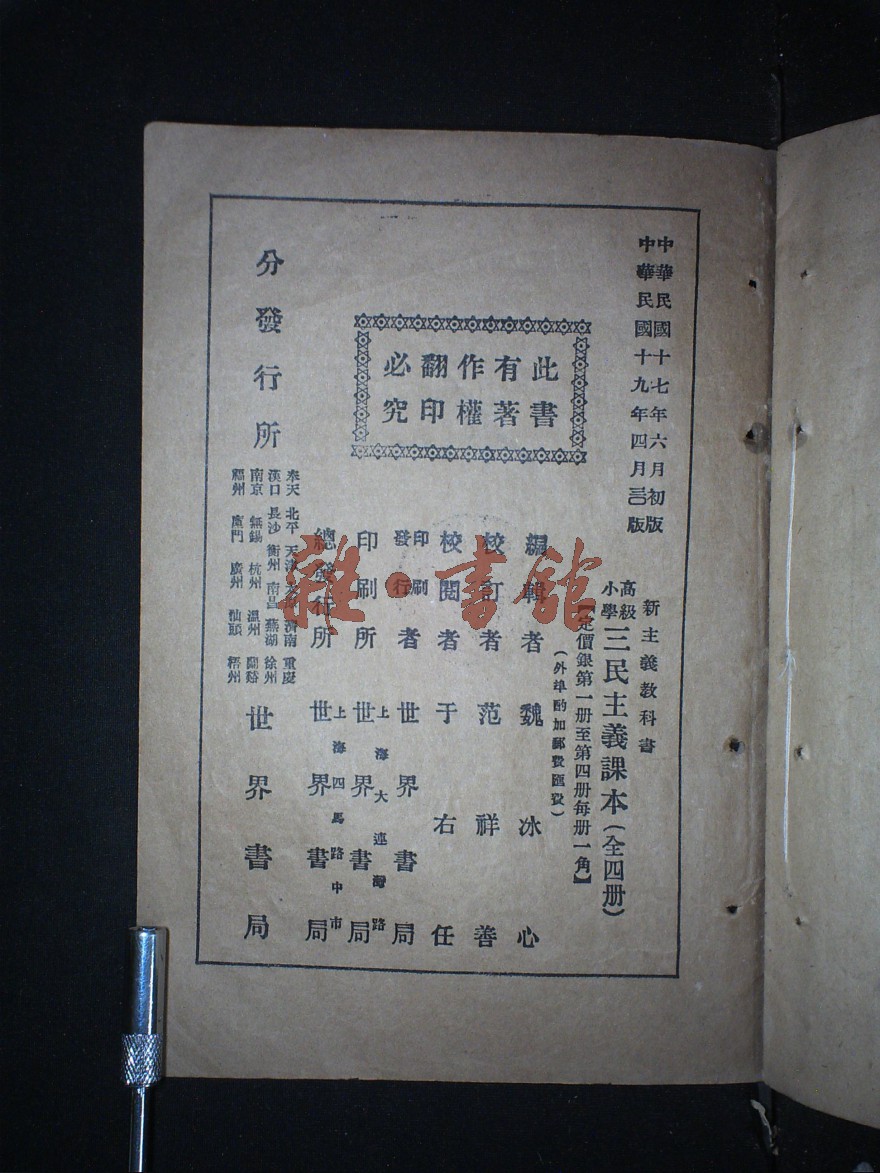 中華民國十七年六月初版
中華民國十九年四月三〇版
新主義教科書
高級小學
三民主義課本(全四册)
【定價銀第一册至第四册每册一角】
(外埠酌加郵費匯費)
此書
有著
作權
翻印
必究
編輯者 魏冰心
校訂者 范祥善
校閱者 于右任
印刷發行者 世界書局
印刷所 上海大連灣路 世界書局
總發行所 上海四馬路中市 世界書局
分發行所
奉天 北平 天津 濟南 重慶
漢口 長沙 衡州 南昌 蕪湖 徐州
南京 無錫 杭州 溫州 蘭谿
福州 廈門 廣州 汕頭 梧州
世界書局
雜·書館